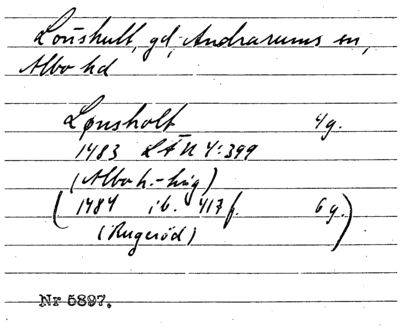 Lönshult, gd, Andrarums sn,
Albo hd
Lønsholt 4g.
1483 LÆN 4:399
(Albo h.-hūg)
(1484 ib. 417 f. 6g.)
(Rugeröd)
Nr 5897.